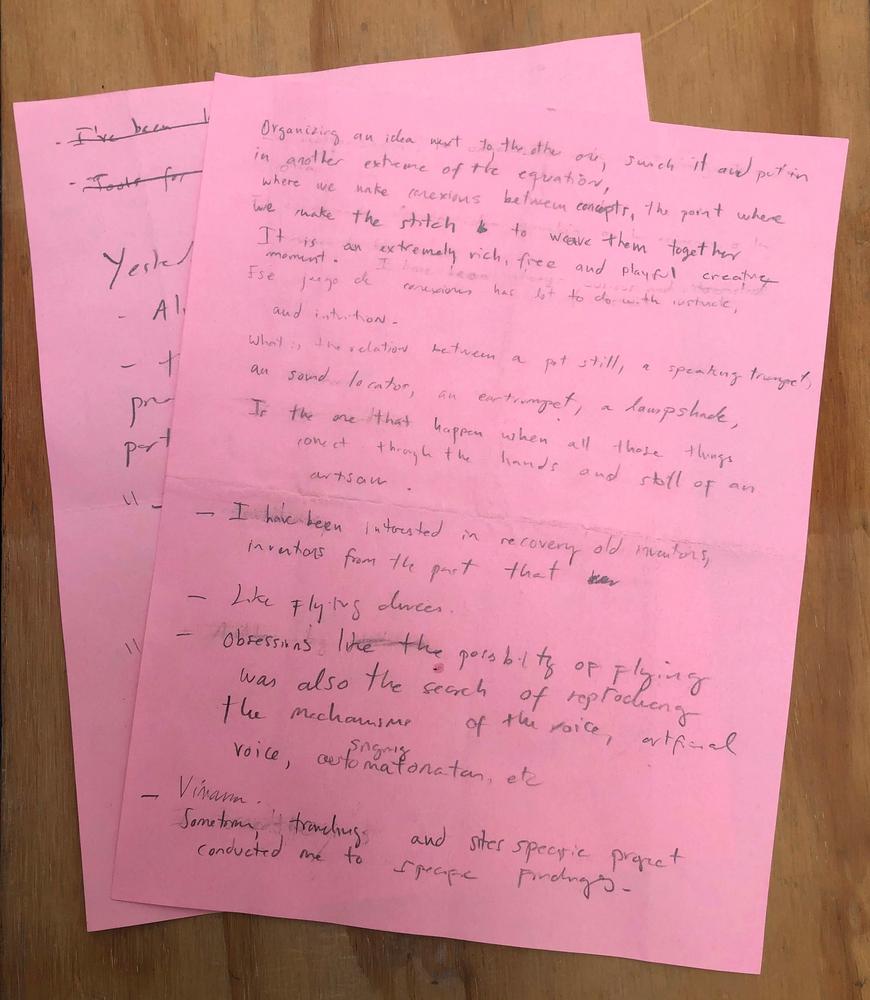 - I've been
- Tools for
Yested
- Al
- t
pr
part
" -
"
Organizing an idea next to the othe one, switch it and put in
in another extreme of the equation,
where we make conexious between concepts, the point where
we make the stitch to weave them together
It is an extremely rich, free and playful creative
moment.
Ese juego de conexious has lot to do with
and intuition.
What is the relation between a pot still, a speaking trumpet,
an sound locator, an eartrumpet, a lampshade,
Is the one that happen when all those things
conect through the hands and skill of an
artsan.
- I have been interested in recovery old inventors,
inventors from the past that
- Like Flying
- Obsessions like the possbilty of Flying
was also the search of
the mechanisms of the voice, artficial
singing
voice, etc
-
and sites specific project
conducted me to specific Findings.